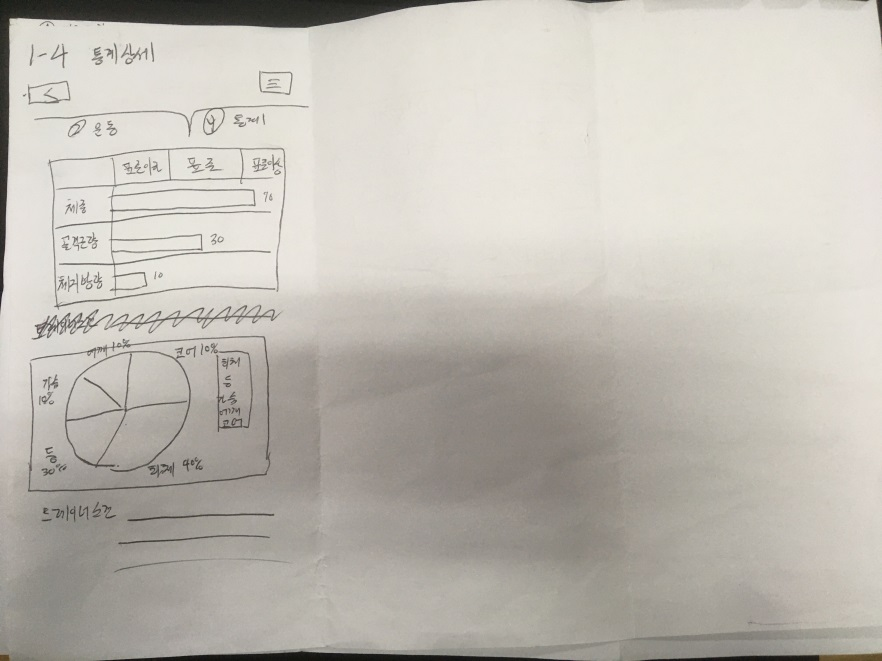 1-4 통계상세
<
② 운동 ④ 통계
표준이하 표준 표준이상
체중 70
골격근량 30
체지방량 10
어깨 10% 코어 10%
가슴
10%
등
30%
하체 40%
하체
등
가슴
어깨
코어
트레이너소견